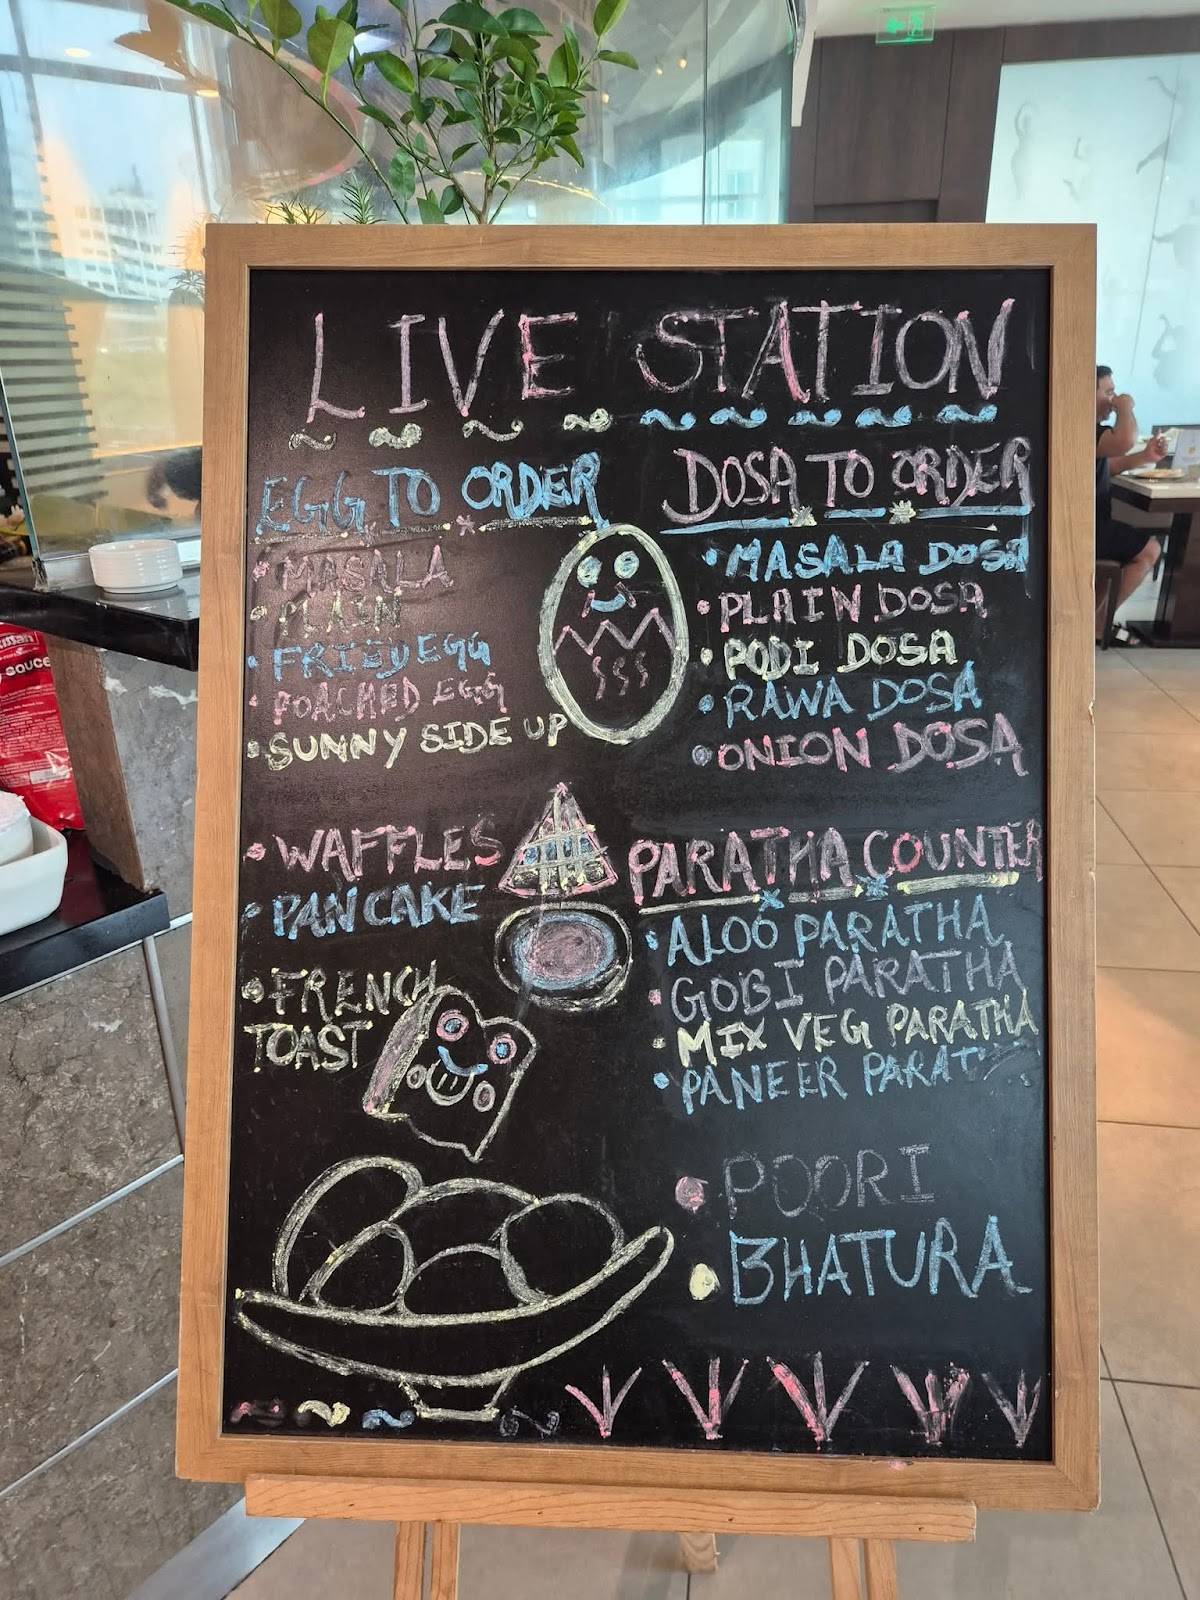 LIVE STATION
EGG TO ORDER
MASALA
PLAIN
FRIED EGG
POACHED EGG
SUNNY SIDE UP
WAFFLES
PANCAKE
FRENCH
TOAST
DOSA TO ORDER
MASALA DOSA
PLAIN DOSA
PODI DOSA
RAWA DOSA
ONION DOSA
PARATHA COUNTER
ALOO PARATHA
GOBI PARATHA
MIX VEG PARATHA
PANEER PARAT
POORI
BHATURA
sauce